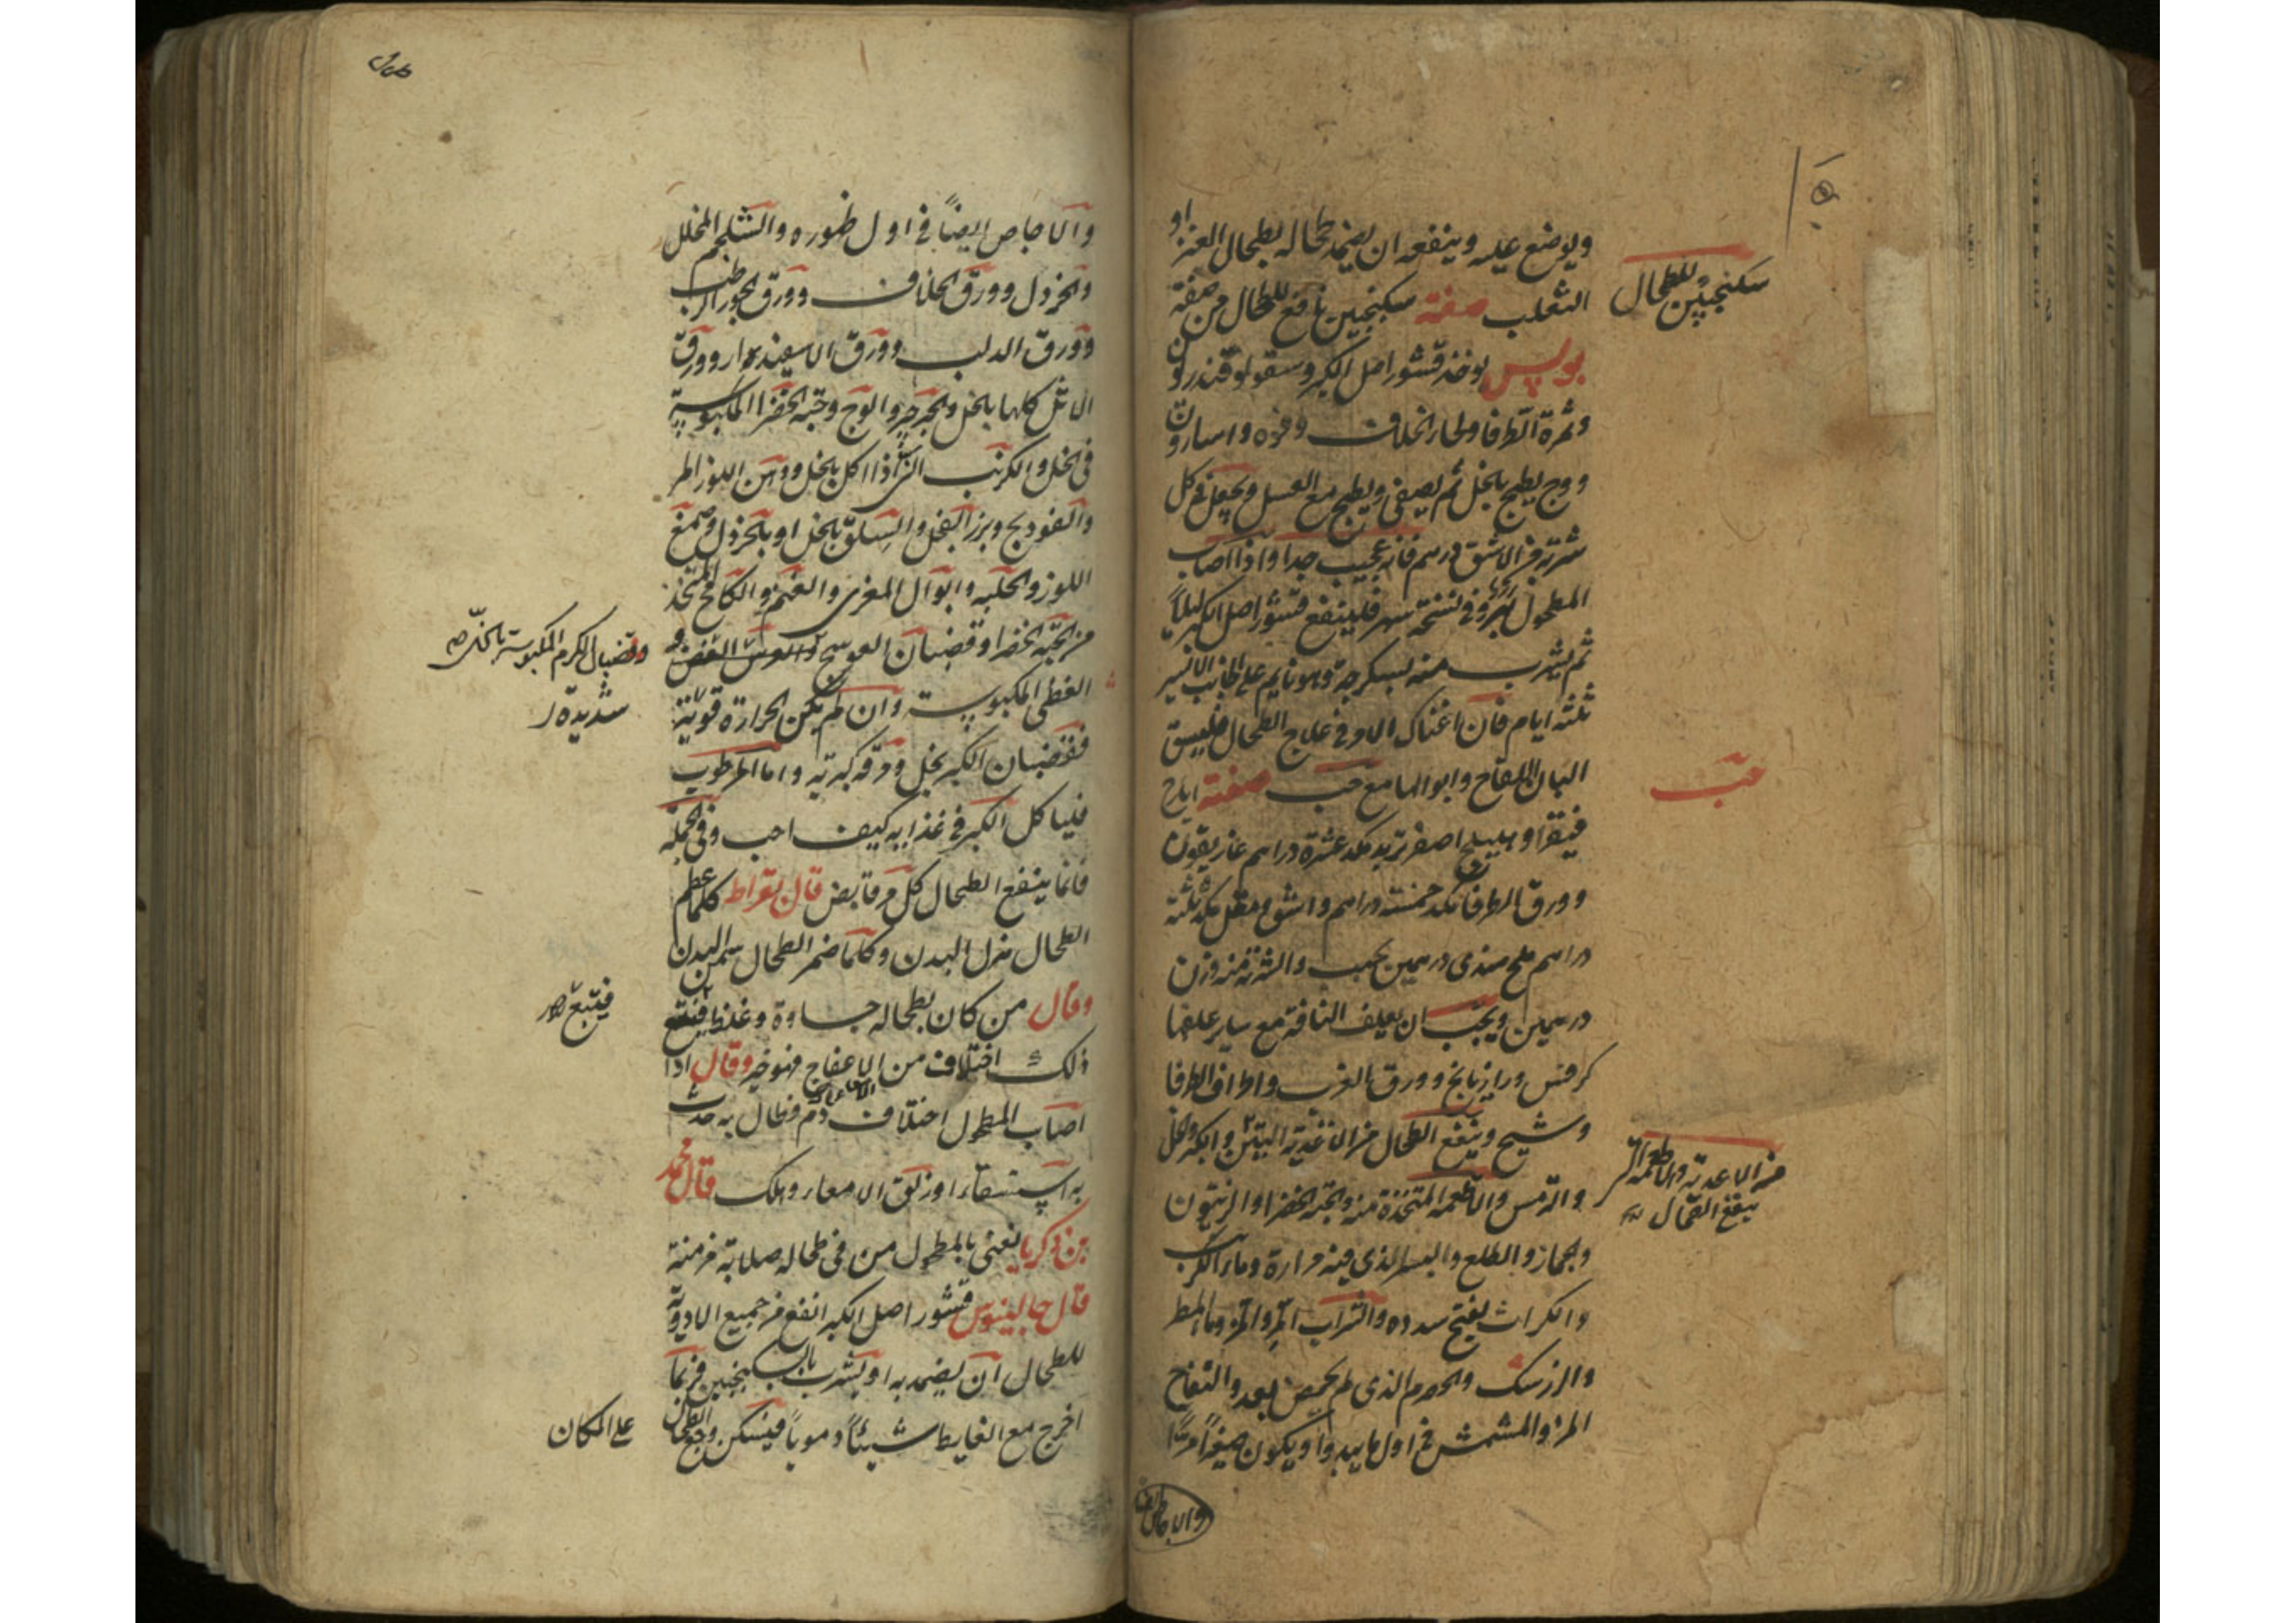 ويوضع عليه وينفعه ان يضمد طحاله بطحال العنز او
الثعلب صفة سكنجبين نافع للطحال من صفة
سكنجبين للطحال
بولس يوخذ قشور اصل الكبر وسقولوقندريون
وثمرة الطرفا ولحا الخلاف وفوه واسارون
ووج يطبخ بالخل ثم يصفى ويطبخ مع العسل ويجعل في كل
شربة من الاشق درهم فانه عجيب جدا واذا اصاب
المطحول وفي نسخة فلينقع قشور اصل الكبر ليلا
ثم يشرب منه بسكرجة وهو نايم على الجانب الايسر
ثلثة ايام فان اغناك الامر في علاج الطحال فليسق
البان اللقاح وابوالها مع حب صفته ايارج
حب
فيقرا وهليلج اصفر تربد مكد عشرة دراهم غاريقون
وورق الطرفا مكد خمسة دراهم واشق ومقل مكد ثلثة
دراهم ملح هندى درهمين يحبب والشربة منه وزن
درهمين ويجب ان يعلف الناقة مع ساير علفها
كرفس ورازيانج وورق الغرب واطراف الطرفا
وشيح وينفع الطحال من الاغذية التين والكبر وكل
من الاغذية والاطعمة التى
ينفع الطحال
والترمس والاطعمة المتخذة منه والحبة الخضرا والزيتون
والجمار والطلع والبسر الذى فيه مرارة وماء الكرنب
والكراث يفتح سدده والشراب المر والمز وماء المطر
والزرشك والحصرم الذى لم يحمض بعد والتفاح
المز والمشمش في اول ما يبدوا ويكون صغيرا مرا
والاجاص ايضا
والاجاص ايضاً في اول ظهوره والشلجم المخلل
والخردل وورق الخلاف وورق الجوز الرطب
وورق الدلب وورق الاسفيدار وورق
الاثل كلها بالخل والجرجير والوج وحبة الخضرا المكبوسة
في الخل والكرنب اذا اكل بالخل ودهن اللوز المر
والفودنج وبزر الفجل والسلق بالخل او بالخردل وصمغ
اللوز والحلبه وابوال المعزى والغنم والكامخ المتخذ
من الحبة الخضرا وقضبان العوسج والعوسج الغض و
وقضبان الكرم المكبوسة بالخل صح
الغض المكبوسة وان لم يكن الحرارة قوية
شديدة
فقضبان الكبر بخل ومرقه كبرية واما المرطوب
فلياكل الكبر في غذايه كيف احب وفي الجملة
فانما ينفع الطحال كل مر قابض قال بقراط كلما عظم
الطحال هزل البدن وكلما ضمر الطحال سمن البدن
وقال من كان بطحاله جساوة وغلظ فيتبع
فيتبع
ذلك اختلاف من الاعفاج فهو خير وقال اذا
اصاب المطحول اختلاف دم وطال به حدث
به استسقاء او زلق الامعاء وهلك قال محمد
بن زكريا يعنى بالمطحول من في طحاله صلابة مزمنة
قال جالينوس قشور اصل الكبر انفع من جميع الادوية
للطحال ان يضمد به او يشرب بالسكنجبين فربما
اخرج مع الغايط شيئاً دموياً فيسكن وجع الطحال
على المكان